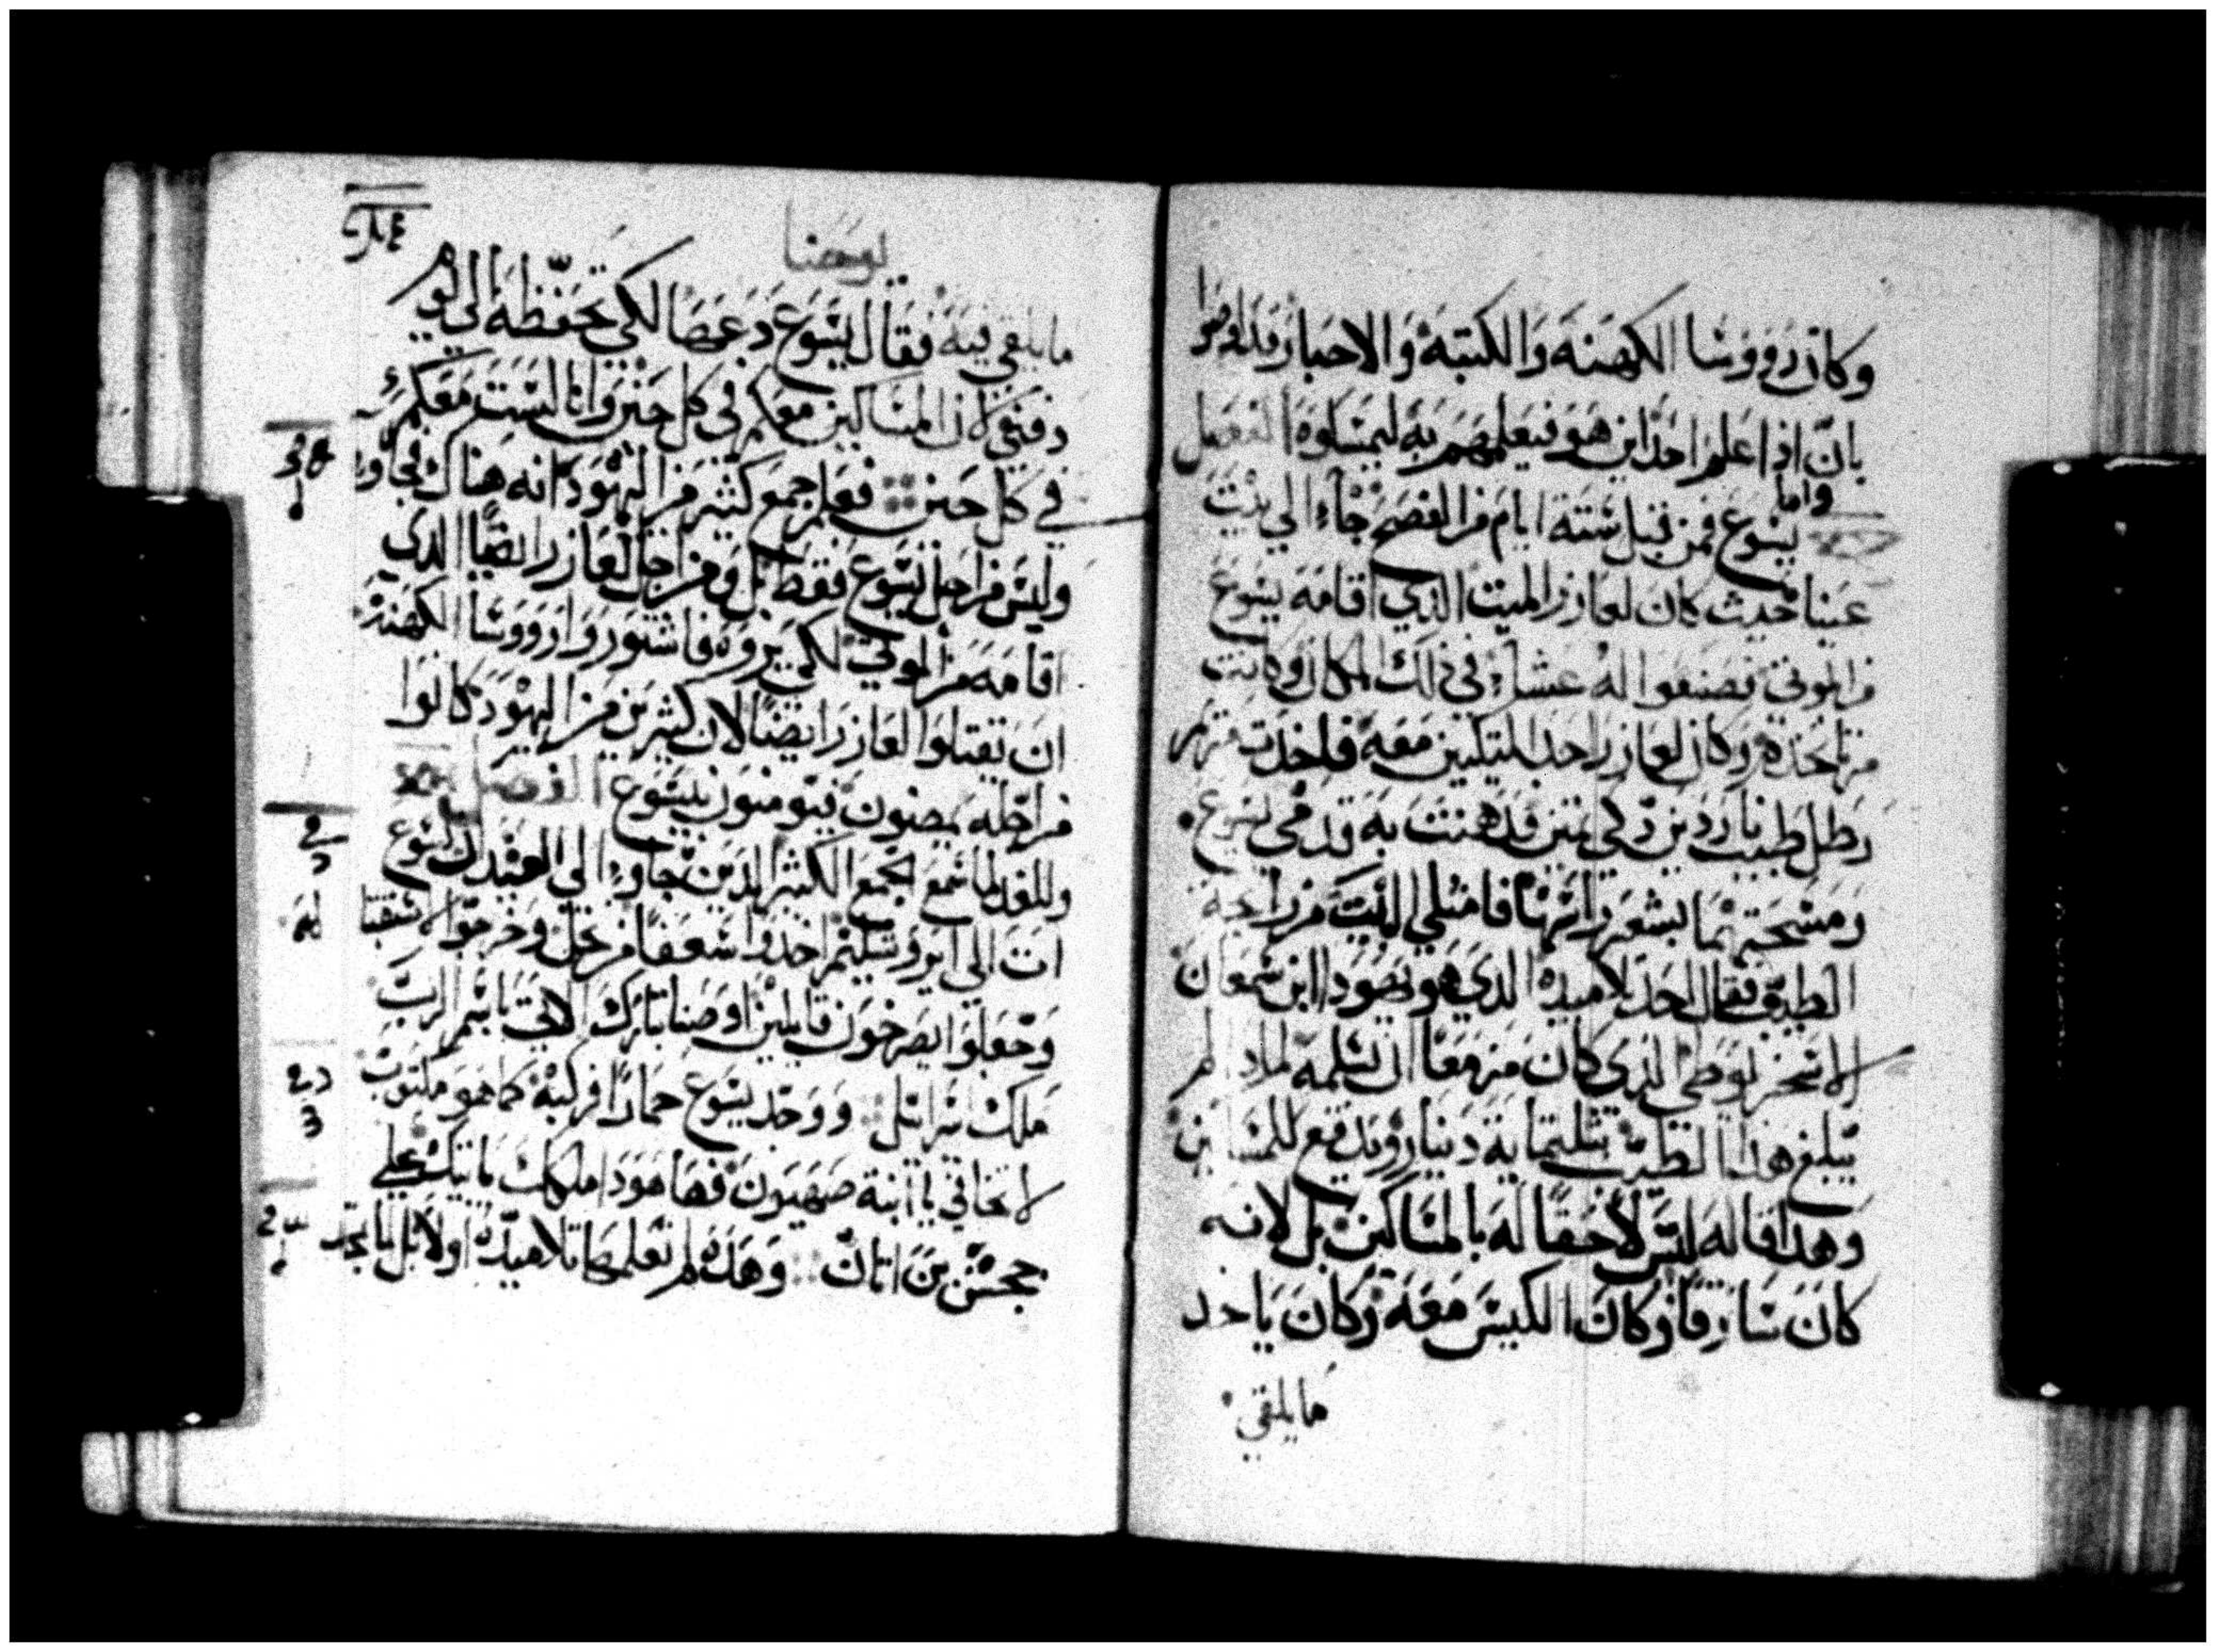 وكان رووسا الكهنه والكتبة والاحبار قد اوصوا
بان اذا علم احد اين هو فيعلمهم به ليمسكوه الفصل
واما
يسوع فمن قبل ستة ايام من الفصح جاء الي بيت
عنيا حيث كان لعازر الميت الذي اقامه يسوع
من الموتي فصنعوا له عشاء في ذلك المكان وكانت
مرتا تخدم وكان لعازر احد المتكين معه فاخدت مريم
رطل طيب ناردين زكي فدهنت به قدمي يسوع
ومسحتهما بشعر راسها فامتلي البيت من رايحة
الطيب فقال احد تلاميده الدي هو يهودا ابن سمعان
الاسخريوطي الذي كان مزمعا ان يسلمه لمادا لم
يبلغ هذا الطيب بثلثماية دينار ويدفع للمساكين
وهدا قاله ليس لاحقا له بالمساكين بل لانه
كان سارقا وكان الكيس معه وكان ياخد
ما يلقي
يوحنا
ما يلقي فيه فقال يسوع دعها لكي تحفظه الي يوم
دفني لان المساكين معكم في كل حين وانا لست معكم
في كل حين فعلم جمع كثير من اليهود انه هناك فجاوا
وليس من اجل يسوع فقط بل ومن اجل لعازر ايضا الدي
اقامه من الموتي لكي يروه فاشتوروا رووسا الكهنة
ان يقتلوا لعازر ايضا لان كثيرين من اليهود كانوا
من اجله يمضون فيومنون بيسوع الفصل
وللغد لما سمع الجمع الكثير الدين جاوا الي العيد ان يسوع
ات الي ايروشليم اخدوا سعفا من نخل وخرجوا لاستقبا له
وجعلوا يصرخون قايلين اوصنا تبارك الاتي باسم الرب
ملك اسرائيل ووجد يسوع حمارا فركبه كما هو مكتوب
لا تخافي يا ابنة صهيون فها هودا ملكك ياتيك علي
جحش بن اتان وهده لم تعلمها تلاميده اولا بل لما تمجد